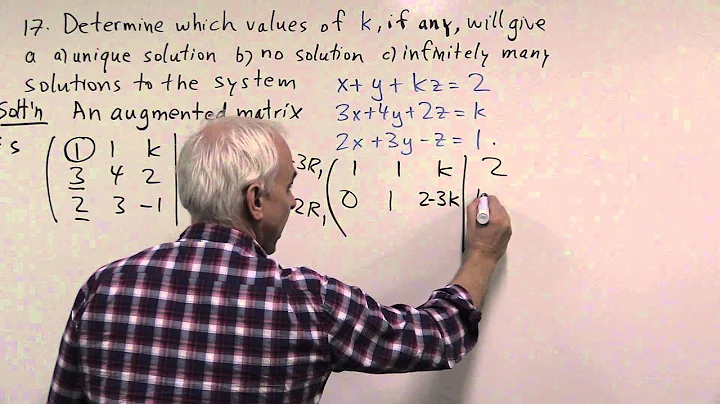 17. Determine which values of k, if any, will give
a a) unique solution b) no solution c) infinitely many
solutions to the system x + y + kz = 2
Sol'tn An augmented matrix 3x + 4y + 2z = k
is 2x + 3y - z = 1.
1 1 k -3R₁ 1 1 k 2
3 4 2
2 3 -1 -2R₁ 0 1 2-3k